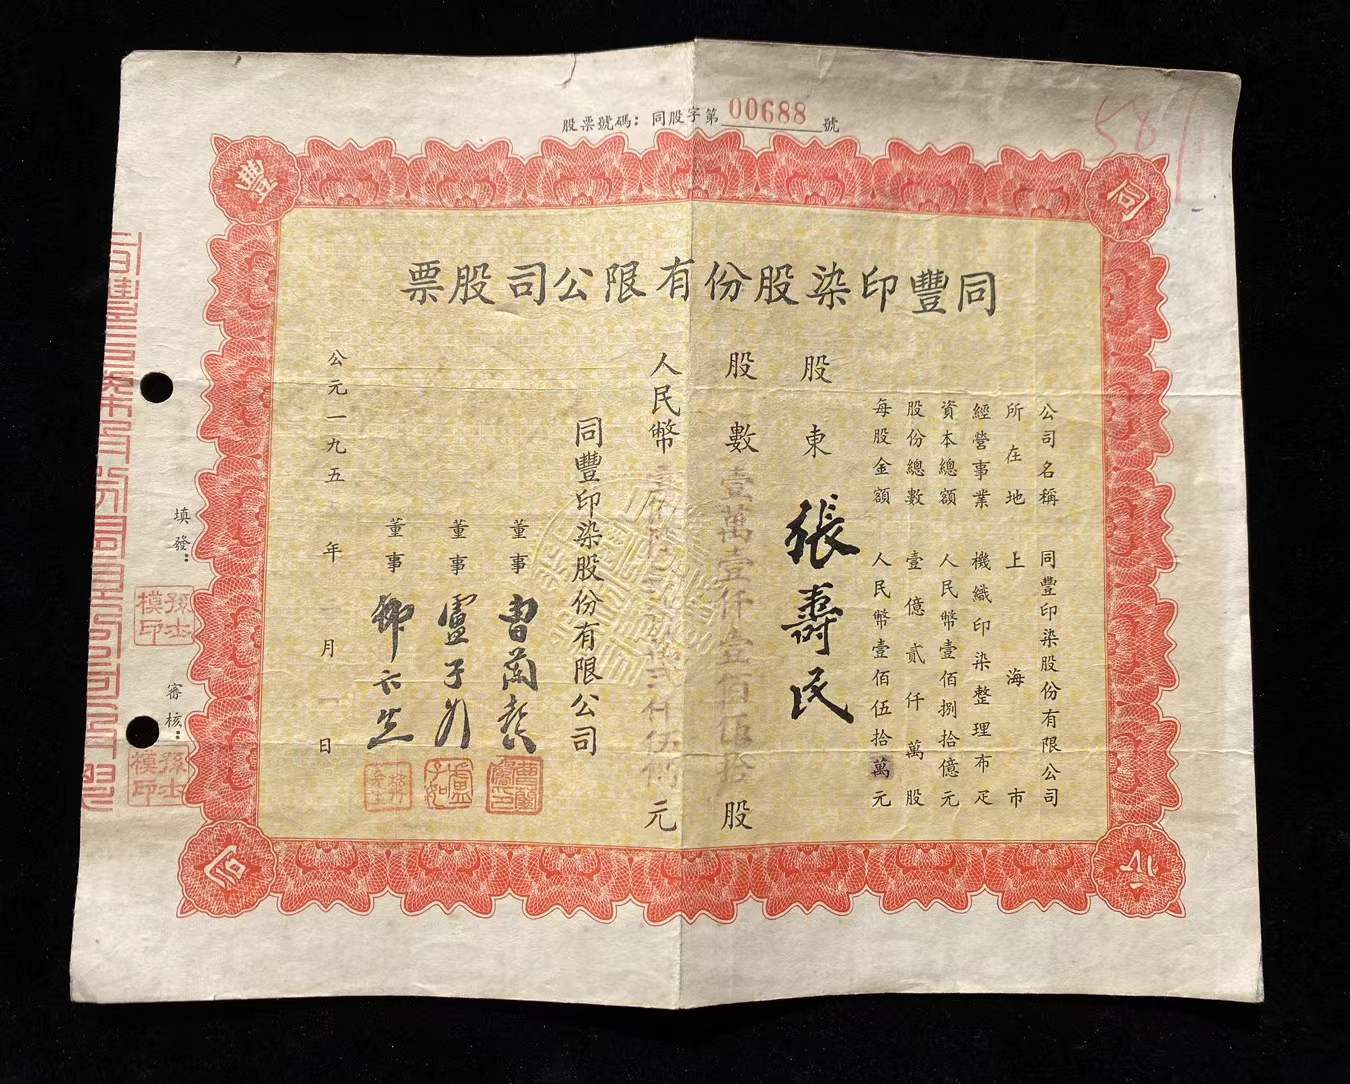 股票號碼：同股字第00688號
587
同豐印染股份有限公司股票
公司名稱 同豐印染股份有限公司
所在地 上海市
經營事業 機織印染整理布疋
資本總額 人民幣壹佰捌拾億元
股份總數 壹億貳仟萬股
每股金額 人民幣壹佰伍拾萬元
股東 張壽民
股數 壹萬壹仟壹佰伍拾股
人民幣 元
同豐印染股份有限公司
董事 曹蘭彬
董事 盧子
董事
公元一九五 年 月一日
填發：
孫士模印
審核：
孫士模印
同
豐
公
司